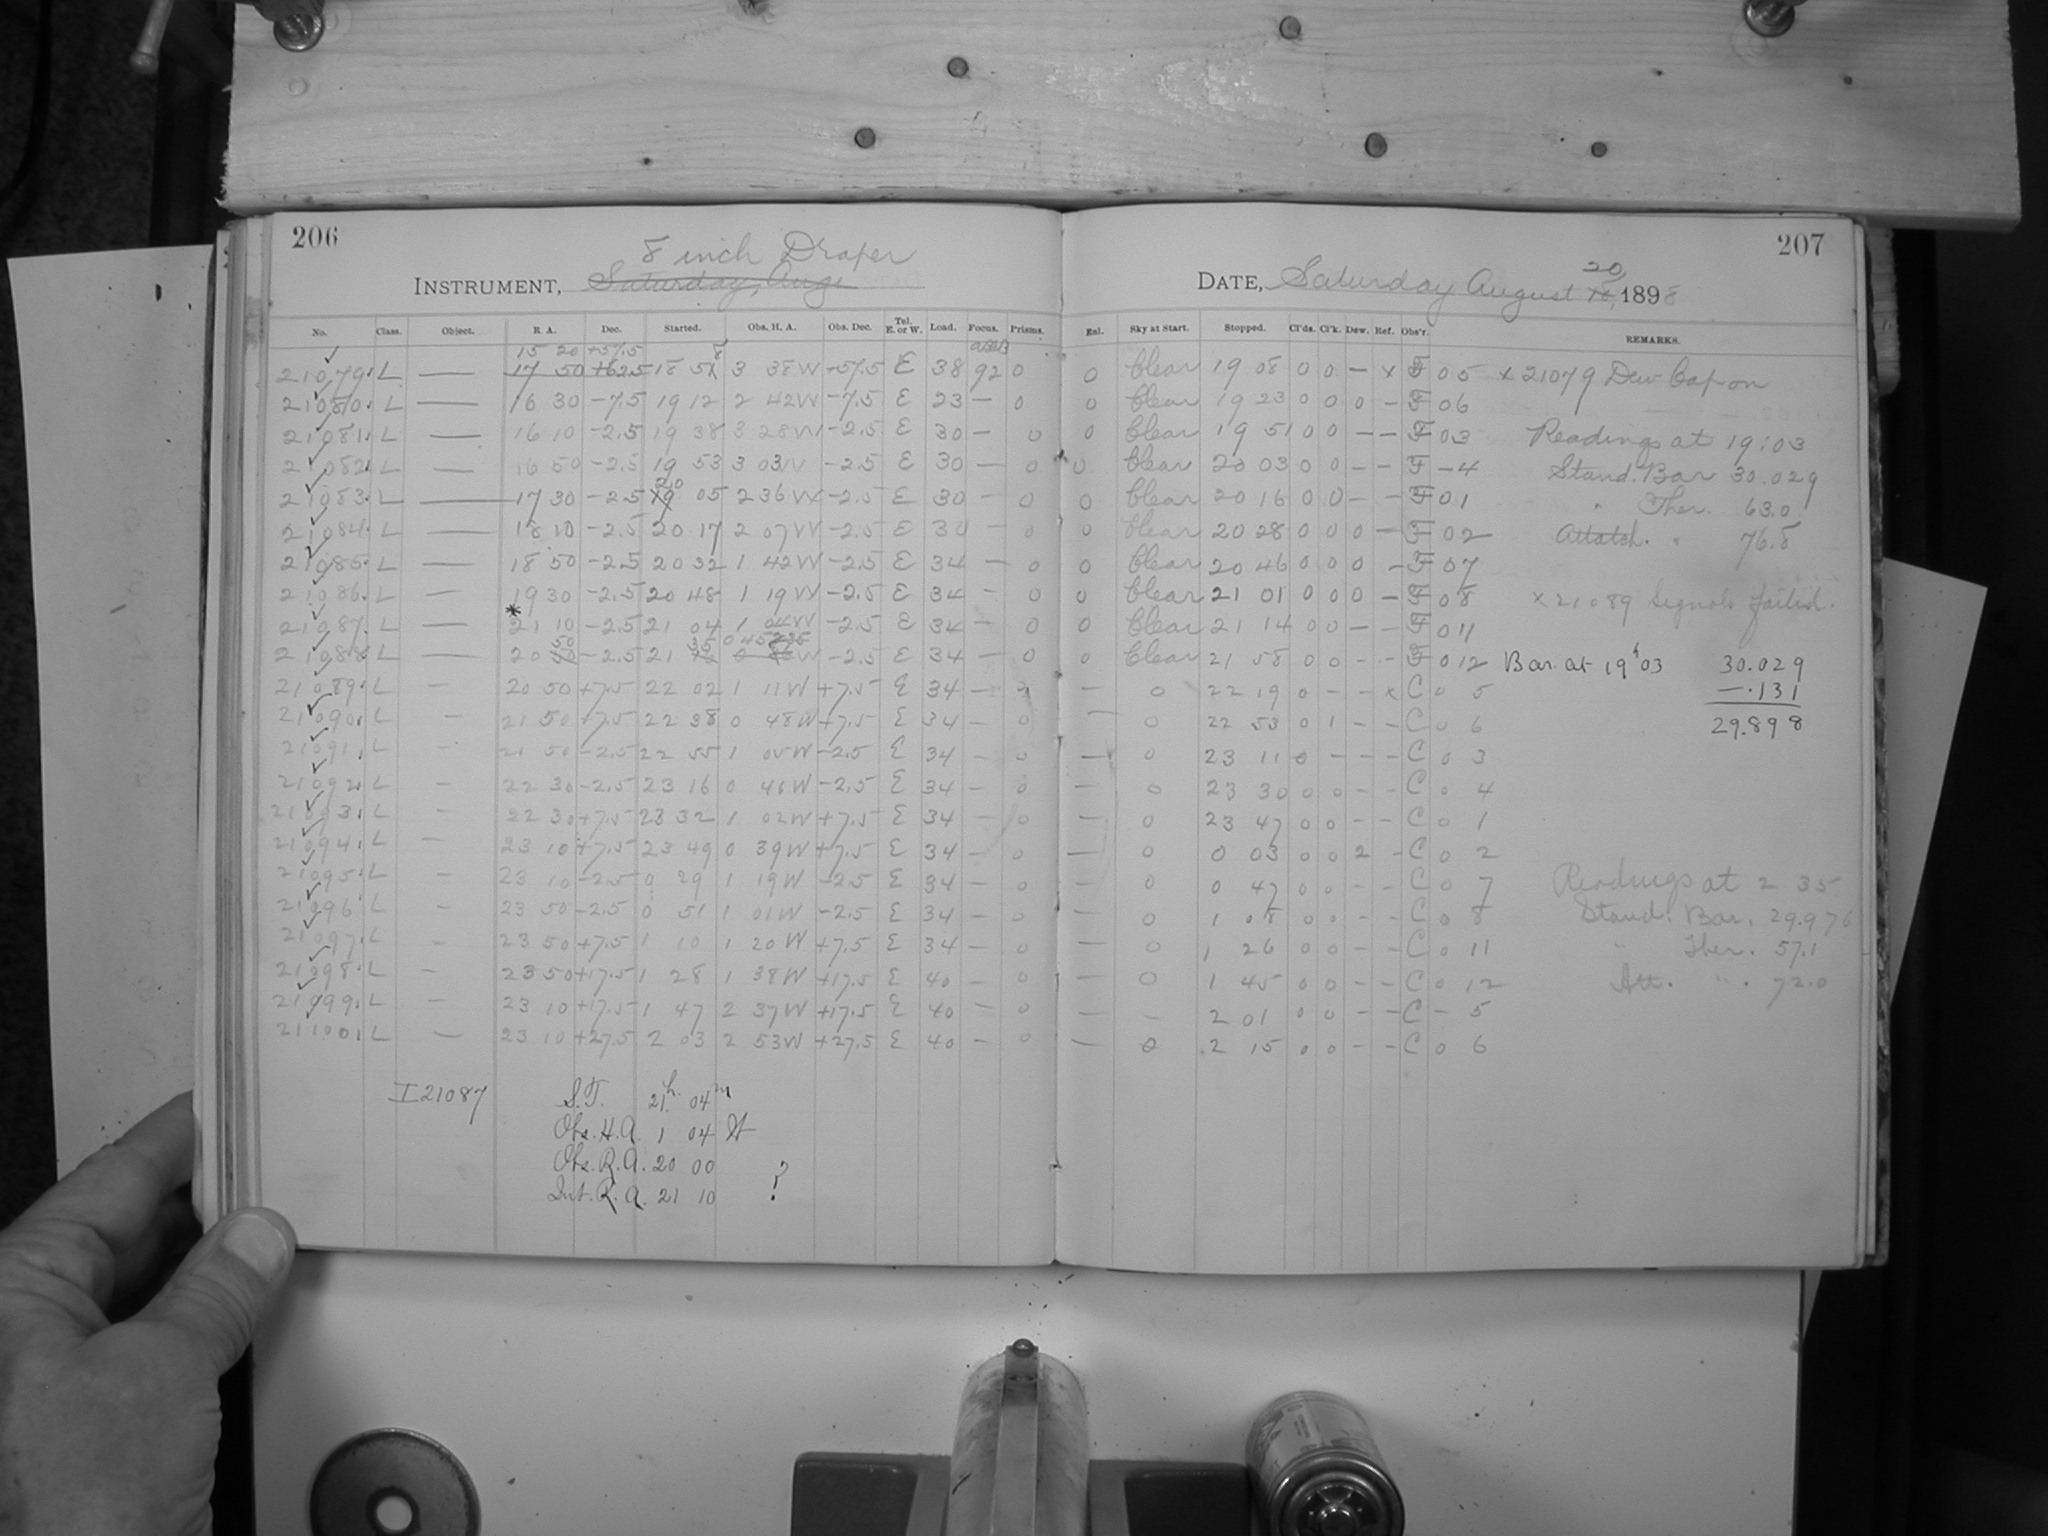 206
8 inch Draper
INSTRUMENT, Saturday, Aug
No. Class. Object. R. A. Dec. Started. Obs. H. A. Obs. Dec. Tel. E. or W. Load. Focus. Prisms.
15 20 +57.5
21079. L — 17 50 +62.5 18 58 3 38W +57.5 E 38 92 0
21080. L — 16 30 -7.5 19 12 2 42W -7.5 E 23 - 0
21081. L — 16 10 -2.5 19 38 3 28W -2.5 E 30 - 0
21082. L — 16 50 -2.5 19 53 3 03W -2.5 E 30 - 0
20
21083. L — 17 30 -2.5 19 05 2 36W -2.5 E 30 - 0
21084. L — 18 10 -2.5 20 17 2 07W -2.5 E 30 - 0
21085. L — 18 50 -2.5 20 32 1 42W -2.5 E 34 - 0
21086. L — 19 30 -2.5 20 48 1 19W -2.5 E 34 - 0
*
21087. L — 21 10 -2.5 21 04 1 04W -2.5 E 34 - 0
50 35 0 45
21088. L — 20 -2.5 21 0 W -2.5 E 34 - 0
21089. L - 20 50 +7.5 22 02 1 11W +7.5 E 34 -
21090. L - 21 50 +7.5 22 38 0 48W +7.5 E 34 - 0
21091. L - 21 50 -2.5 22 55 1 05W -2.5 E 34 - 0
21092. L - 22 30 -2.5 23 16 0 46W -2.5 E 34 - 0
21093. L - 22 30 +7.5 23 32 1 02W +7.5 E 34 - 0
21094. L - 23 10 +7.5 23 49 0 39W +7.5 E 34 - 0
21095. L - 23 10 -2.5 0 29 1 19W -2.5 E 34 - 0
21096 L - 23 50 -2.5 0 51 1 01W -2.5 E 34 - 0
21097. L - 23 50 +7.5 1 10 1 20W +7.5 E 34 - 0
21098. L - 23 50 +17.5 1 28 1 38W +17.5 E 40 - 0
21099. L - 23 10 +17.5 1 47 2 37W +17.5 E 40 - 0
21100. L - 23 10 +27.5 2 03 2 53W +27.5 E 40 - 0
I 21087 S.T. 21h 04m
Obs. H.A. 1 04 W
Obs. R.A. 20 00
Int. R.A. 21 10 ?
207
20
DATE, Saturday August 1898
Enl. Sky at Start. Stopped. Cl'ds. Cl'k. Dew. Ref. Obs'r. REMARKS.
0 Clear 19 08 0 0 - x F 05 x 21079 Dew Cap on
0 Clear 19 23 0 0 0 - F 06
0 Clear 19 51 0 0 - - F 03 Readings at 19:03
0 Clear 20 03 0 0 - - F -4 Stand. Bar 30.029
0 Clear 20 16 0 0 - - F 01 " Ther. 63.0
0 Clear 20 28 0 0 0 - F 02 Attatch. " 76.8
0 Clear 20 46 0 0 0 - F 07
0 Clear 21 01 0 0 0 - F 08 x 21089 Signals failed.
0 Clear 21 14 0 0 - - F 011
0 Clear 21 58 0 0 - - F 012 Bar. at 19h 03 30.029
- 0 22 19 0 - - x C 0 5 -.131
- 0 22 53 0 1 - - C 0 6 29.898
- 0 23 11 0 - - - C 0 3
- 0 23 30 0 0 - - C 0 4
0 23 47 0 0 - - C 0 1
- 0 0 03 0 0 2 - C 0 2
- 0 0 47 0 0 - - C 0 7 Readings at 2 35
- 0 1 08 0 0 - - C 0 8 Stand. Bar. 29.976
- 0 1 26 0 0 - - C 0 11 " Ther. 57.1
- 0 1 45 0 0 - - C 0 12 Att. " . 72.0
- - 2 01 0 0 - - C - 5
- 0 2 15 0 0 - - C 0 6